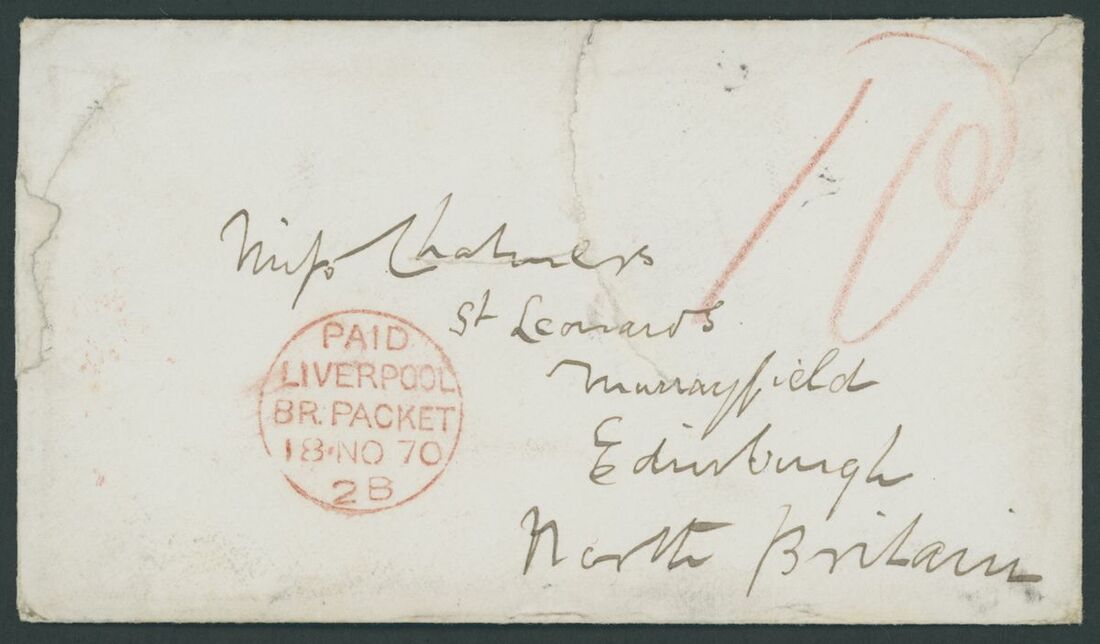 10
Miss Chalmers
St Leonards
Murrayfield
Edinburgh
North Britain
PAID
LIVERPOOL
BR. PACKET
18·NO 70
2B